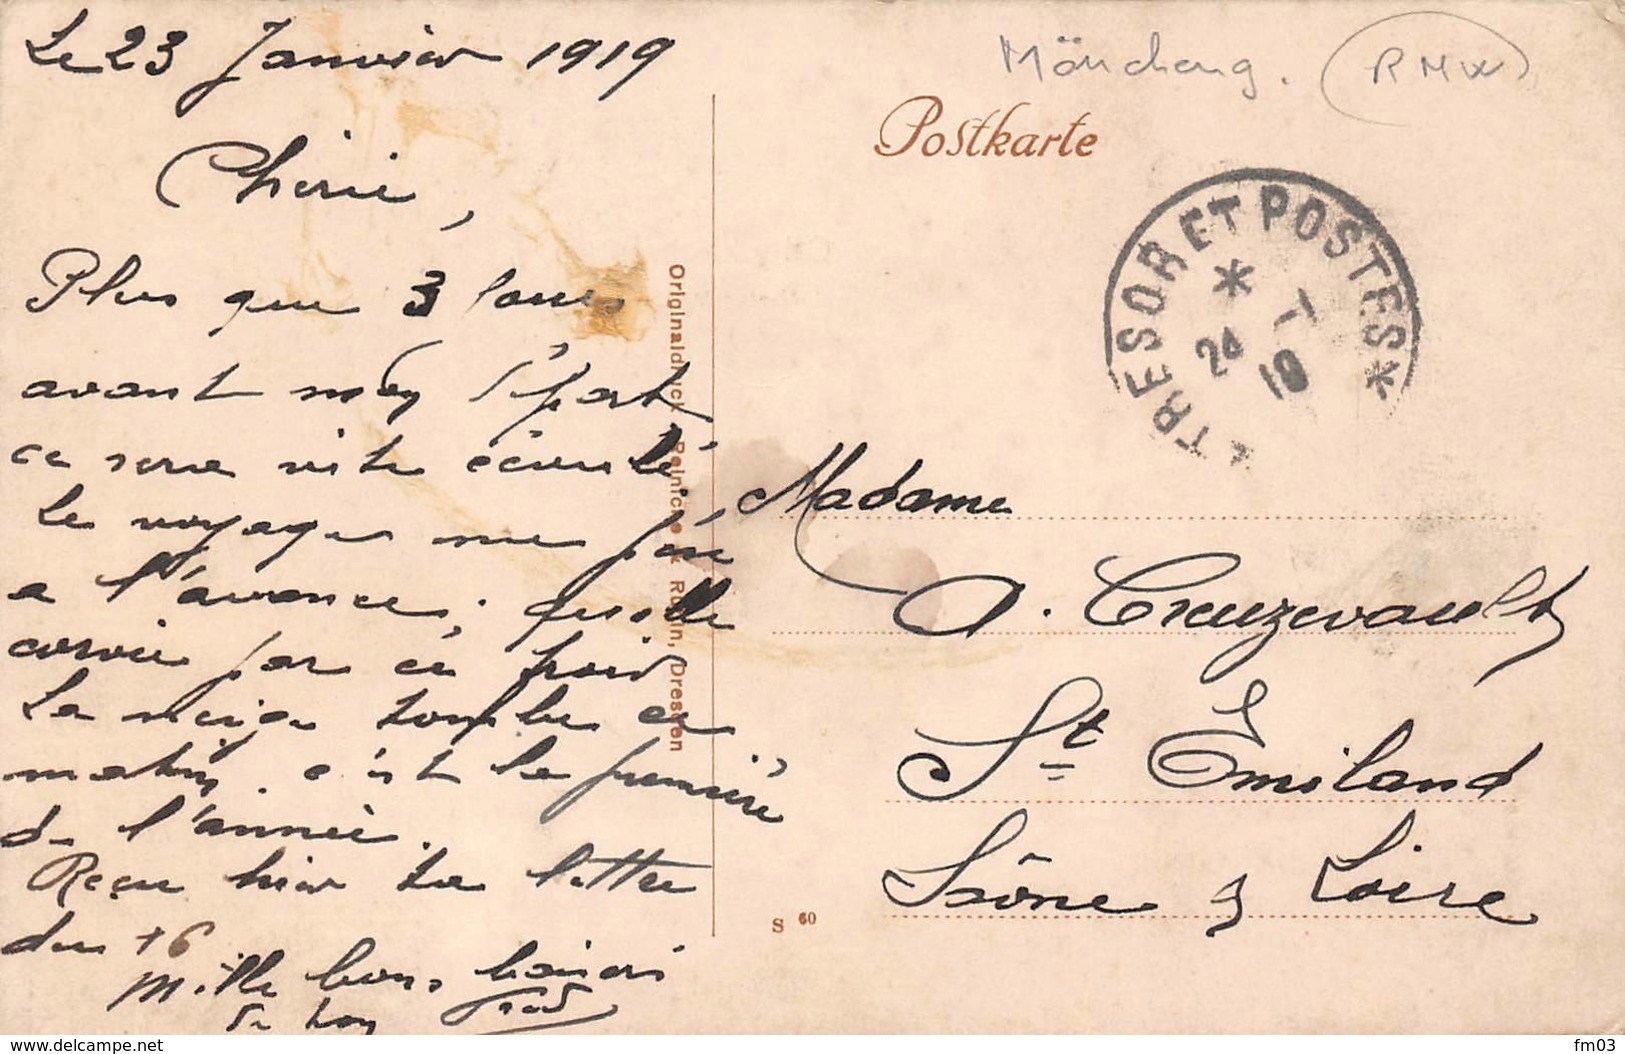 Le 23 Janvier 1919
Chérie,
Plus que 3 jours
avant mon départ
ce sera vite écoulé.
Le voyage me fixe
a l'avance, quelle
corvée par ce froid
La neige tombe ce
matin. c'est la première
de l'année.
Reçu hier ta lettre
du 16
Mille bons baisers
de ton
Mönch
(RNW)
Postkarte
TRESOR ET POSTES
24 -1 19
Originaldruck Reinicke & Rubin, Dresden
Madame
A. Creuzevault
St Emiland
Saône & Loire
S 60
www.delcampe.net
fm03